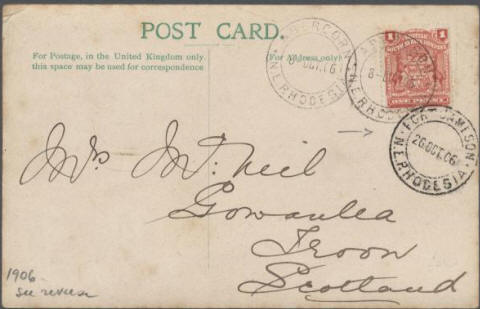 POST CARD.
For Postage, in the United Kingdom only
this space may be used for correspondence
For Address only
ABERCORN
OCT. 06
N.E. RHODESIA
1 1
N.E. RHODESIA
FORT JAMESON
26 OCT. 06
N.E. RHODESIA
Mrs McNeil
Gowanlea
Troon
Scotland
1906
see reverse